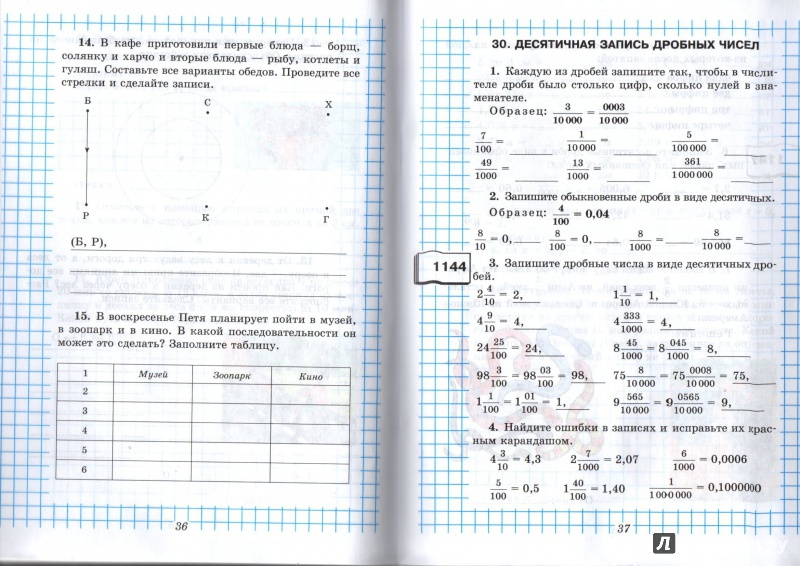 14. В кафе приготовили первые блюда — борщ,
солянку и харчо и вторые блюда — рыбу, котлеты и
гуляш. Составьте все варианты обедов. Проведите все
стрелки и сделайте записи.
Б С Х
Р К Г
(Б, Р),
15. В воскресенье Петя планирует пойти в музей,
в зоопарк и в кино. В какой последовательности он
может это сделать? Заполните таблицу.
1 Музей Зоопарк Кино
2
3
4
5
6
36
30. ДЕСЯТИЧНАЯ ЗАПИСЬ ДРОБНЫХ ЧИСЕЛ
1. Каждую из дробей запишите так, чтобы в числи-
теле дроби было столько цифр, сколько нулей в зна-
менателе.
Образец: 3/10 000 = 0003/10 000
7/100 = 1/10 000 = 5/100 000 =
49/1000 = 13/1000 = 361/1 000 000 =
2. Запишите обыкновенные дроби в виде десятичных.
Образец: 4/100 = 0,04
8/10 = 0, 8/100 = 0, 8/1000 = 8/10 000 =
1144
3. Запишите дробные числа в виде десятичных дро-
бей.
2 4/10 = 2, 1 1/10 = 1,
4 9/10 = 4, 4 333/1000 = 4,
24 25/100 = 24, 8 45/1000 = 8 045/1000 = 8,
98 3/100 = 98 03/100 = 98, 75 8/10 000 = 75 0008/10 000 = 75,
1 1/100 = 1 01/100 = 1, 9 565/10 000 = 9 0565/10 000 = 9,
4. Найдите ошибки в записях и исправьте их крас-
ным карандашом.
4 3/10 = 4,3 2 7/1000 = 2,07 6/1000 = 0,0006
5/100 = 0,5 1 40/100 = 1,40 1/1 000 000 = 0,1000000
37
Л